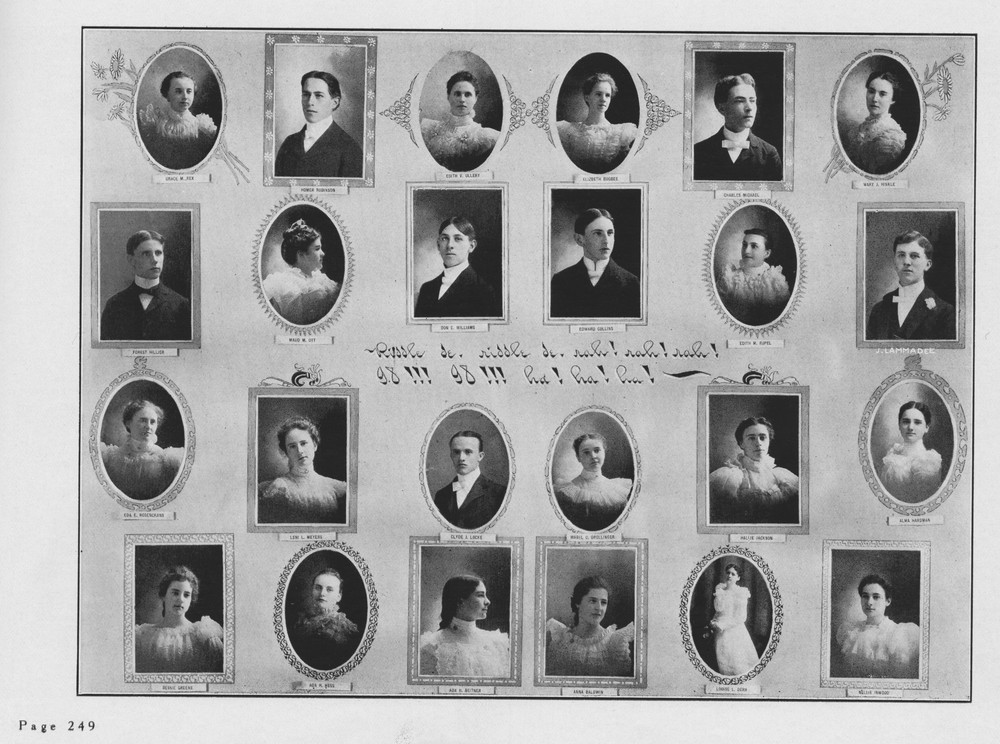 GRACE M. REX
HOMER ROBINSON
EDITH V. ULLERY
ELIZBETH BUGBEE
CHARLES MICHAEL
MARY J. HINKLE
FOREST HILLIER
MADE M. OTT
DON C. WILLIAMS
EDWARD COLLINS
EDITH M. RUPEL
J. LAMMADEE
Rissle de. rissle de. rah! rah! rah!
98!!! 98!!! ha! ha! ha!
EDA E. ROSENCRANS
LENI L. MEYERS
CLYDE J. LOCKE
MABEL U. GROLLINGER
HALLIE JACKSON
ALMA HARDMAN
BESSIE GREENE
ADA H. BEITNER
ANNA BALDWIN
Page 249